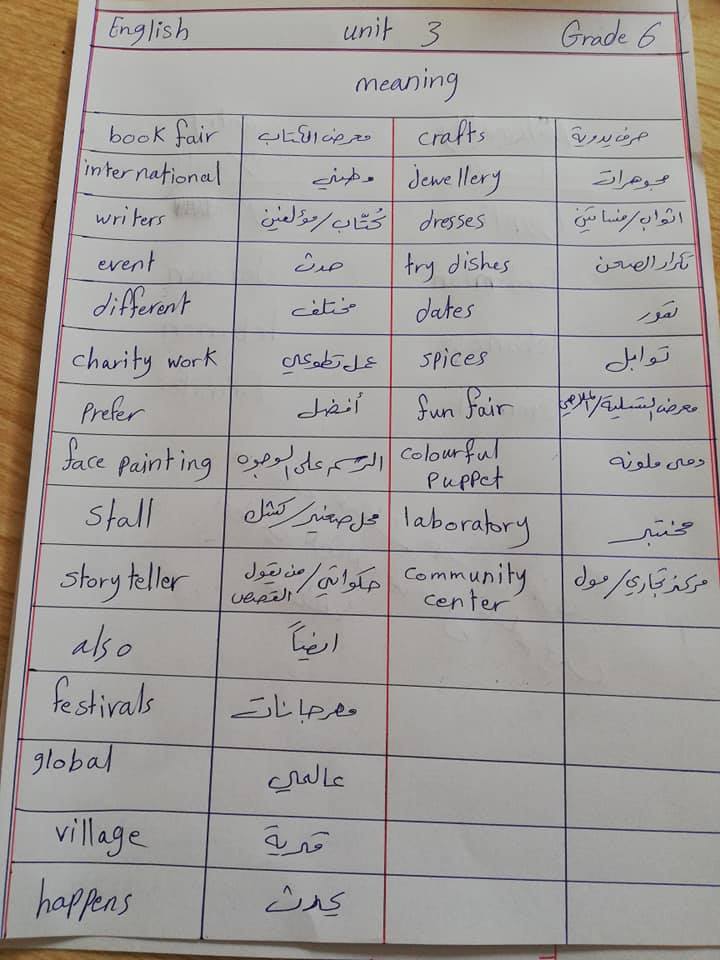 English unit 3 Grade 6
meaning
book fair معرض الكتاب crafts حرف يدوية
international وطني jewellery مجوهرات
writers كُتّاب/مؤلفين dresses اثواب/فساتين
event حدث try dishes تكرار الصحن
different مختلف dates تمور
charity work عمل تطوعي spices توابل
prefer أفضل fun fair معرض التسلية/الملاهي
face painting الرسم على الوجوه colourful puppet دمى ملونه
stall محل صغير/كشك laboratory مختبر
story teller حكواتي/من يقول القصص community center مركز تجاري/مول
also ايضاً
festivals مهرجانات
global عالمي
village قرية
happens يحدث